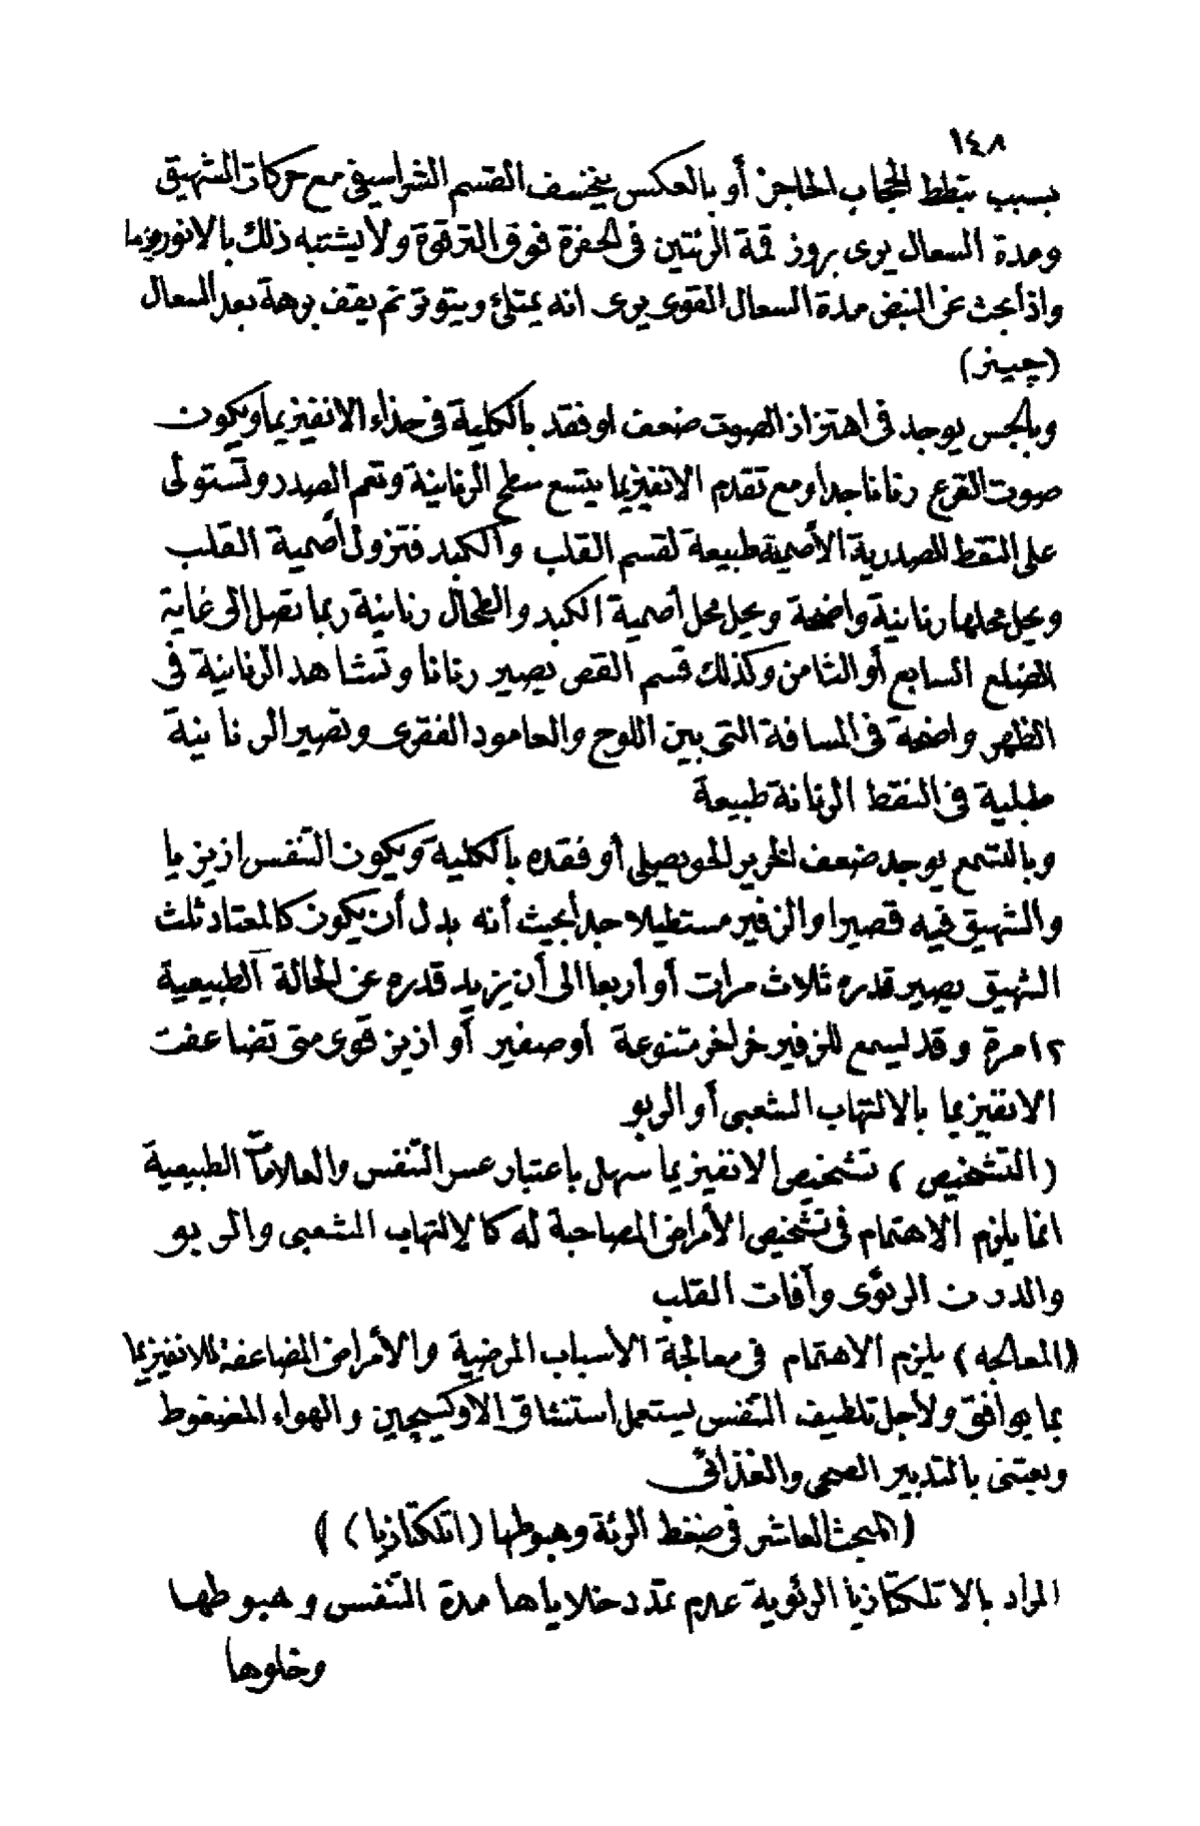 ١٤٨
بسبب تبطط الحجاب الحاجز أو بالعكس ينخسف القسم الشراسيفى مع حركات الشهيق
ومدة السعال يرى بروز قمة الرئتين فى الحفرة فوق الترقوة ولا يشتبه ذلك بالانوريزما
واذا بحث عن النبض مدة السعال القوى يرى انه يمتلئ ويتوتر ثم يقف برهة بعد السعال
(چينز)
وبالجس يوجد فى اهتزاز الصوت ضعف او فقد بالكلية فى حذاء الانفيزيما ويكون
صوت القرع رنانا جدا ومع تقدم الانفيزيما يتسع سطح الرنانية وتعم الصدر وتستولى
على النقط الصدرية الأصمية طبيعة لقسم القلب والكبد فتزول أصمية القلب
ويحل محلها رنانية واضحة ويحل محل أصمية الكبد والطحال رنانية ربما تصل الى غاية
الضلع السابع أو الثامن وكذلك قسم القص يصير رنانا وتشاهد الرنانية فى
الظهر واضحة فى المسافة التى بين اللوح والعامود الفقرى وتصير الرنانية
طبلية فى النقط الرنانة طبيعة
وبالتسمع يوجد ضعف الخرير الحويصلى أو فقده بالكلية ويكون التنفس ازيزيا
والشهيق فيه قصيرا والزفير مستطيلا جدا بحيث أنه بدل أن يكون كالمعتاد ثلث
الشهيق يصير قدره ثلاث مرات أو أربعا الى أن يزيد قدره عن الحالة الطبيعية
١٢ مرة وقد يسمع للزفير خراخر متنوعة أو صفير أو ازيز قوى متى تضاعفت
الانفيزيما بالالتهاب الشعبى أو الربو
(التشخيص) تشخيص الانفيزيما سهل باعتبار عسر التنفس والعلامات الطبيعية
انما يلزم الاهتمام فى تشخيص الأمراض المصاحبة له كالالتهاب الشعبى والربو
والدرن الرئوى وآفات القلب
(المعالجه) يلزم الاهتمام فى معالجة الأسباب المرضية والأمراض المضاعفة للانفيزيما
بما يوافق ولأجل تلطيف التنفس يستعمل استنشاق الاوكسيچين والهواء المضغوط
ويعتنى بالتدبير الصحى والغذائى
(المبحث العاشر فى ضغط الرئة وهبوطها (اتلكتازيا))
المراد بالاتلكتازيا الرئوية عدم تمدد خلاياها مدة التنفس وهبوطها
وخلوها